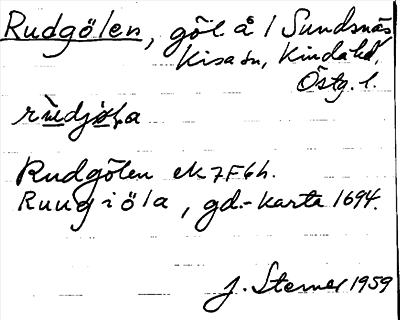 Rudgölen, göl å 1 Sundsnäs
Kisa sn, Kinda hd,
Östg. l.
Rudgölen ek 7F6h.
Ruugiöla, gd.-karta 1694.
J. Sterner 1959